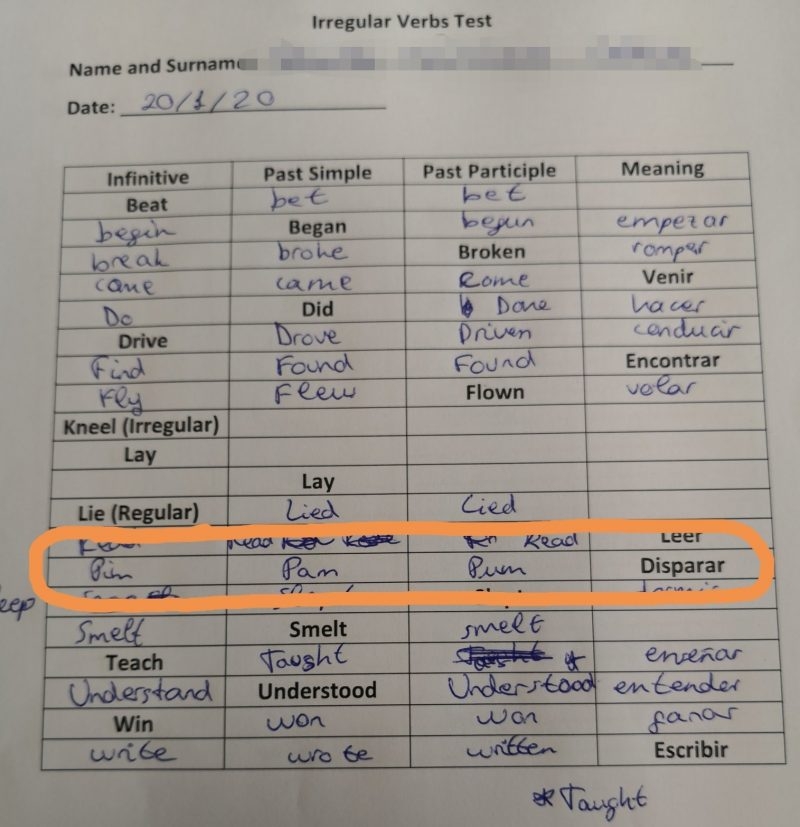 Irregular Verbs Test
Name and Surname
Date: 20/1/20
Infinitive Past Simple Past Participle Meaning
Beat bet bet
begin Began begun empezar
break broke Broken romper
came came Come Venir
Do Did Done hacer
Drive Drove Driven conducir
Find Found Found Encontrar
Fly Flew Flown volar
Kneel (Irregular)
Lay
Lay
Lie (Regular) Lied Lied
Read Read Leer
Pim Pam Pum Disparar
eep
Smelt Smelt smelt
Teach Taught enseñar
Understand Understood Understood entender
Win won won ganar
write wrote written Escribir
* Taught